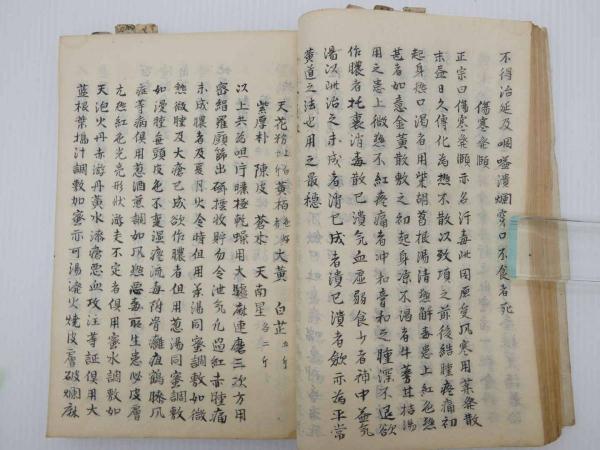 不得治延及咽嗌潰爛穿口不食者死
傷寒發頤
正宗曰傷寒發頤亦名汗毒此因原受風寒用藥發散
未盡日久傳化為熱不散以致項之前後結腫疼痛初
起身熱口渴者用柴胡葛根湯清熱解毒患上紅色熱
甚者如意金黃散敷之初起身涼不渴者牛蒡甘桔湯
用之患上微熱不紅疼痛者沖和膏和之腫深不退欲
作膿者托裏消毒散已潰氣血虛弱食少者補中益氣
湯以此治之未成者消已成者潰已潰者斂亦為平常
黃道之法也用之最穩
天花粉 黃柏 大黃 白芷
紫厚朴 陳皮 蒼朮 天南星 各二斤
以上共為咀片曬極乾燥用大驢磨連磨三次方用
密絹羅廚篩出磁接收貯勿令泄氣凡遇紅赤腫痛
未成膿者及夏月火令時俱用茶湯同蜜調敷如微
熱微腫及大瘡已成欲作膿者俱用葱湯同蜜調敷
如漫腫無頭皮色不變濕痰流毒附骨癰疽鶴膝風
症等病俱用葱酒煎調如風熱惡毒所生患必皮膚
亢熱紅色光亮形狀游走不定者俱用蜜水調敷如
天泡火丹赤游丹黃水漆瘡惡血攻注等証俱用大
藍根葉搗汁調敷加蜜亦可湯潑火燒皮膚破爛麻